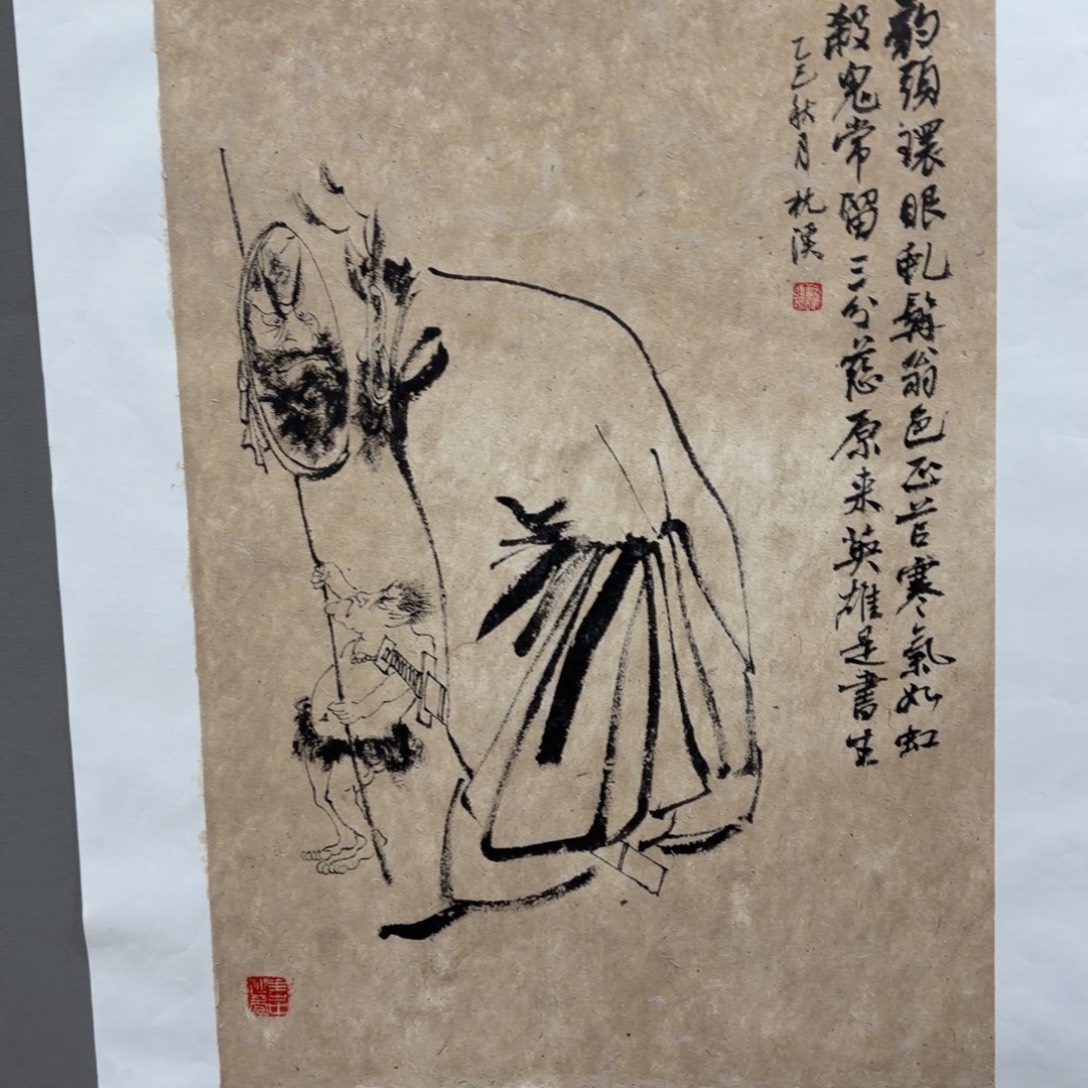 豹頭環眼虬髯翁色正苦寒氣如虹
殺鬼常留三分慈原来英雄是書生
乙巳秋月枕溪